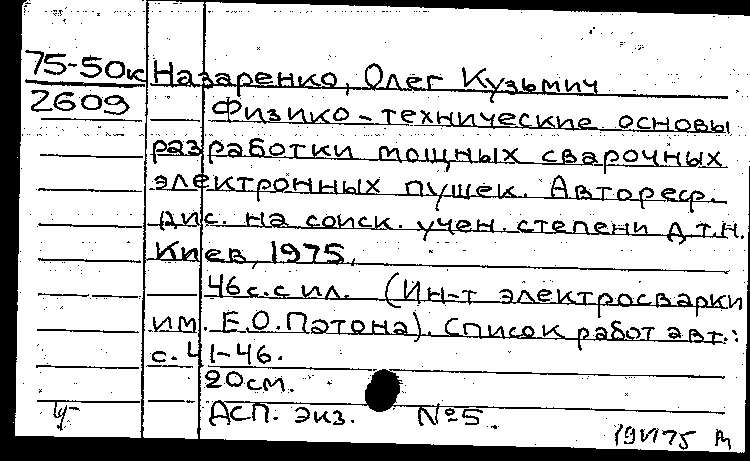 75-50к Назаренко, Олег Кузьмич
2609 Физико-технические основы
разработки мощных сварочных
электронных пушек. Автореф.
дис. на соиск. учен. степени д.т.н.
Киев, 1975.
46с. с ил. (Ин-т электросварки
им. Е.О. Патона). Список работ авт.:
с. 41-46.
20см.
Асп. экз. №5.